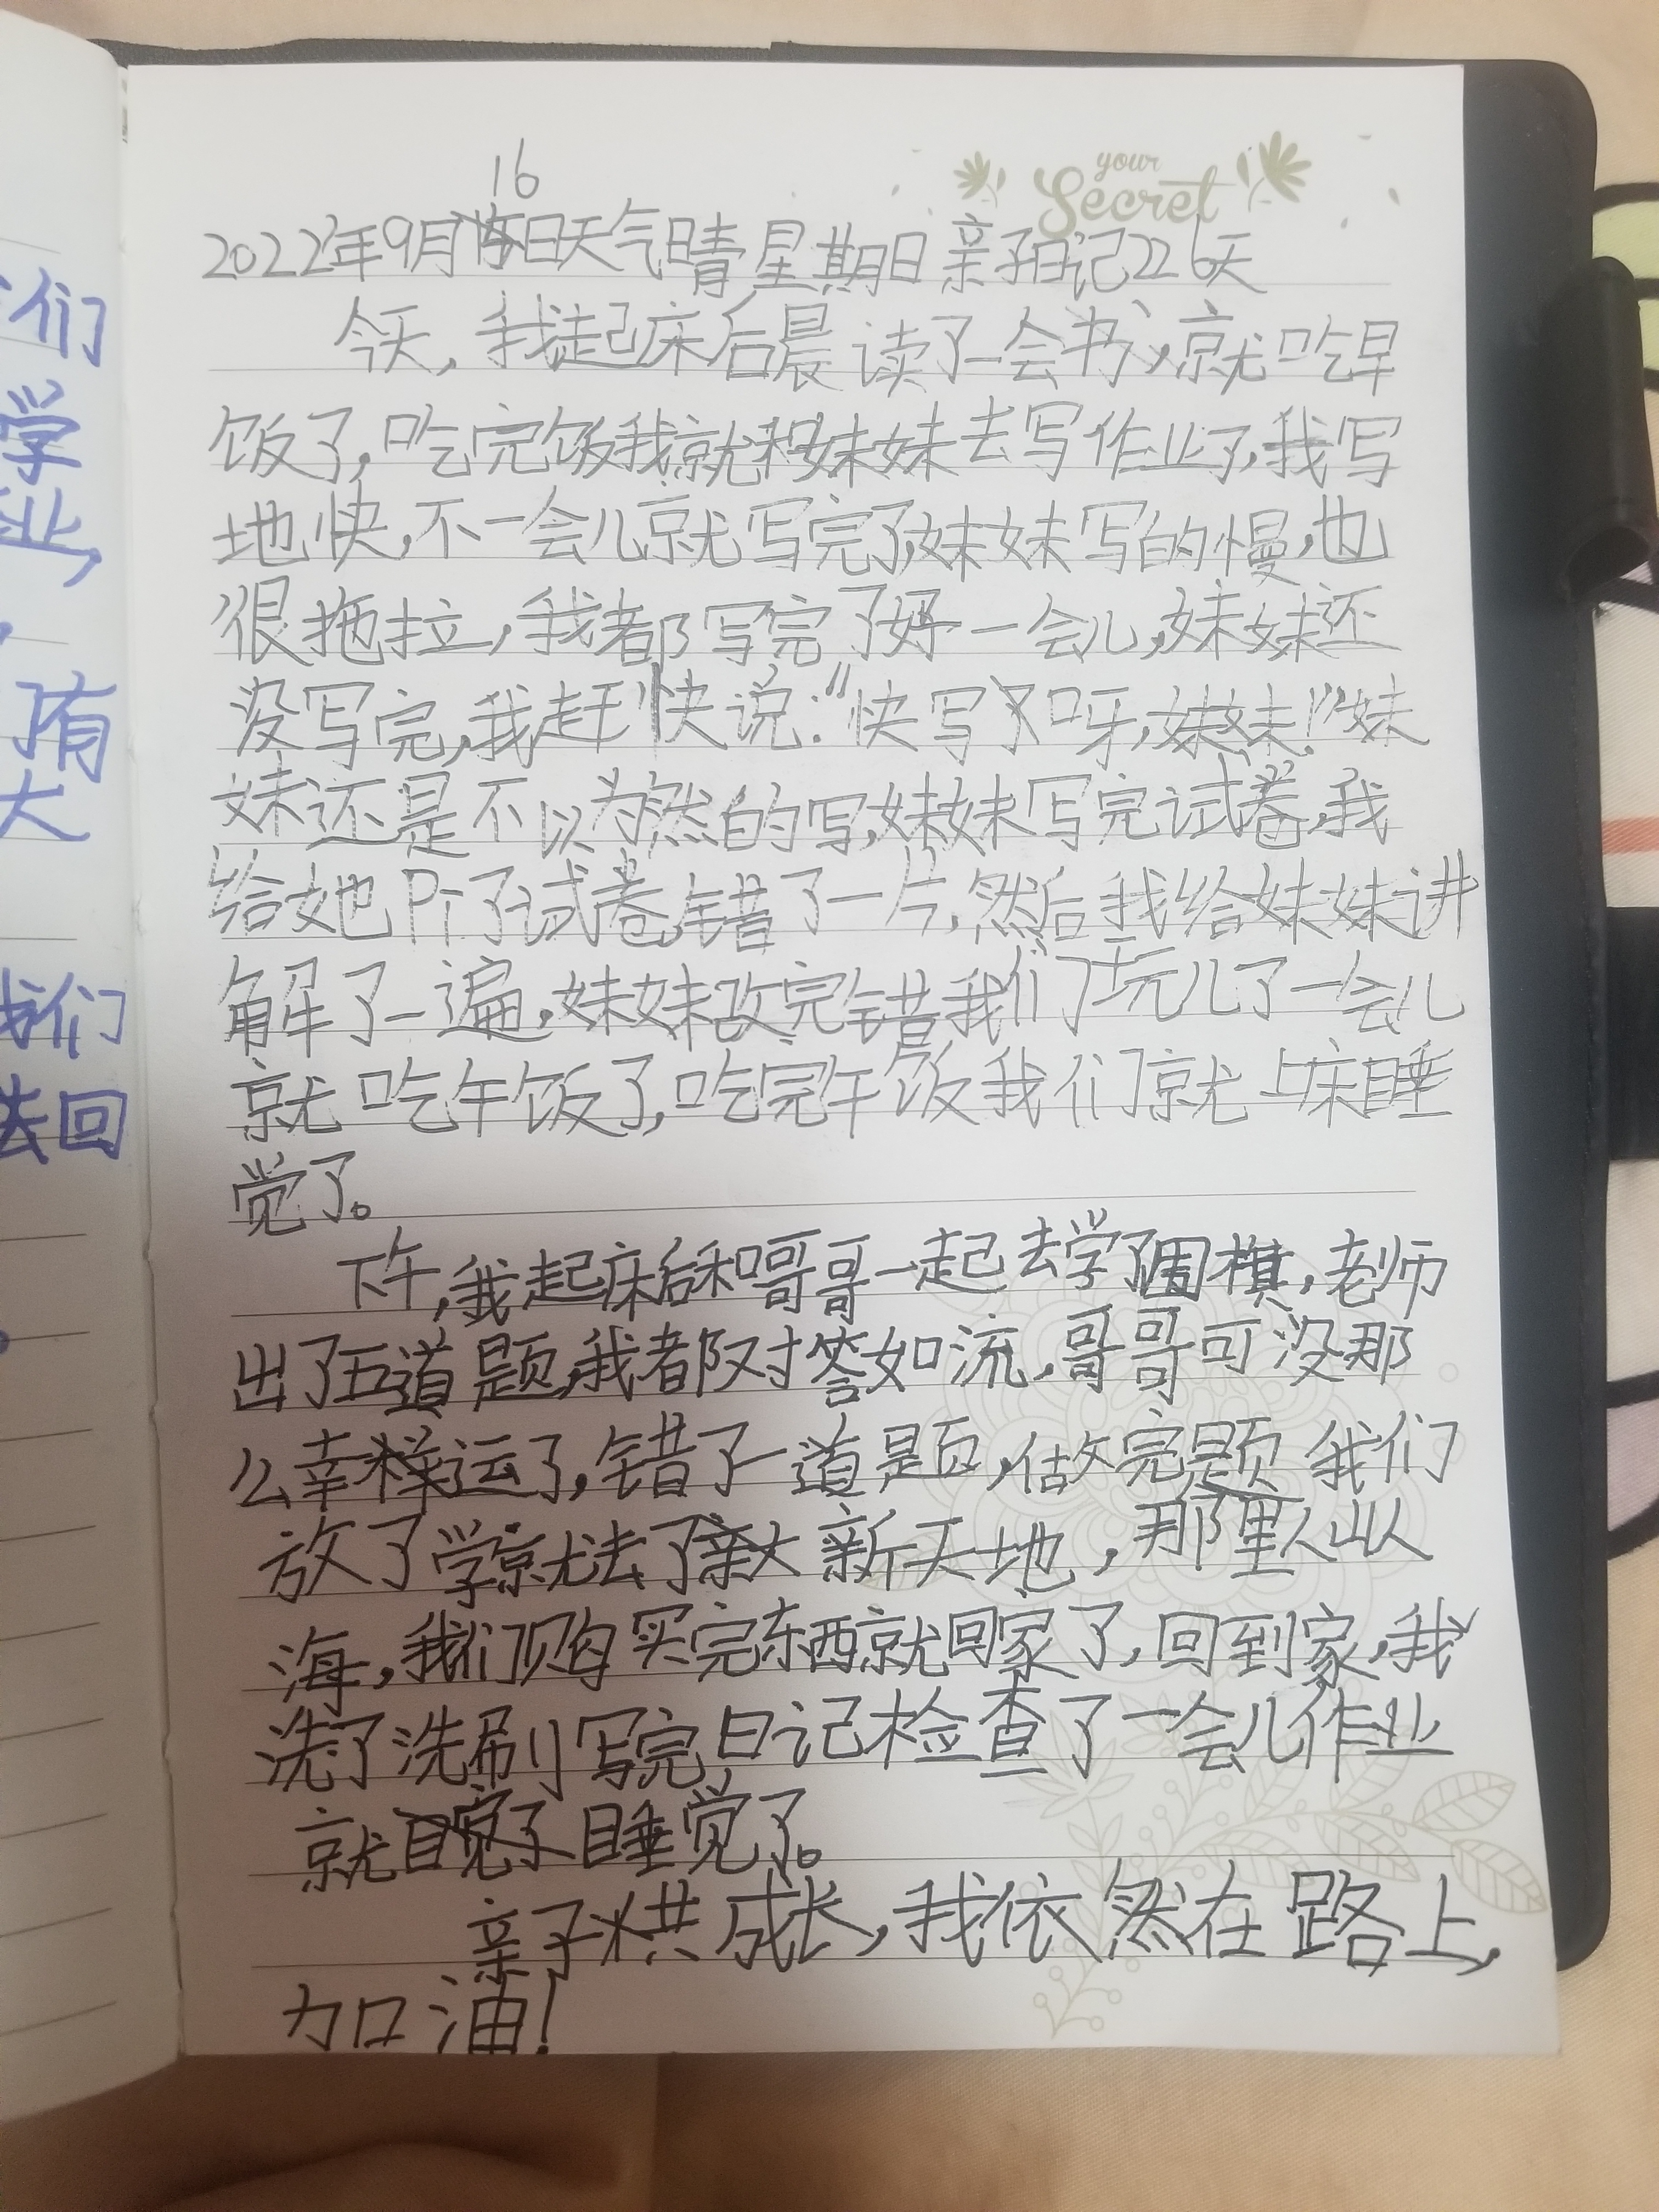 们
学
业,
有
大
我们
去回
your
Secret
16
2022年9月日天气晴星期日亲子日记226天
今天,我起床后晨读了一会书,就吃早
饭了,吃完饭我就和妹妹去写作业了,我写
地快,不一会儿就写完了,妹妹写的慢,也
很拖拉,我都写完了好一会儿,妹妹还
没写完,我赶快说:“快写呀,妹妹!”妹
妹还是不以为然的写,妹妹写完试卷,我
给她片了试卷,错了一片,然后我给妹妹讲
解了一遍,妹妹改完错我们玩儿了一会儿
就吃午饭了,吃完午饭我们就上床睡
觉了。
下午,我起床后和哥哥一起去学了围棋,老师
出了五道题,我都对答如流,哥哥可没那
么幸运了,错了一道题,做完题我们
放了学就去了新天地,那里人山人
海,我们购买完东西就回家了,回到家,我
洗了洗刷写完日记检查了一会儿作业
就睡觉了。
亲子共成长,我依然在路上,
加油!